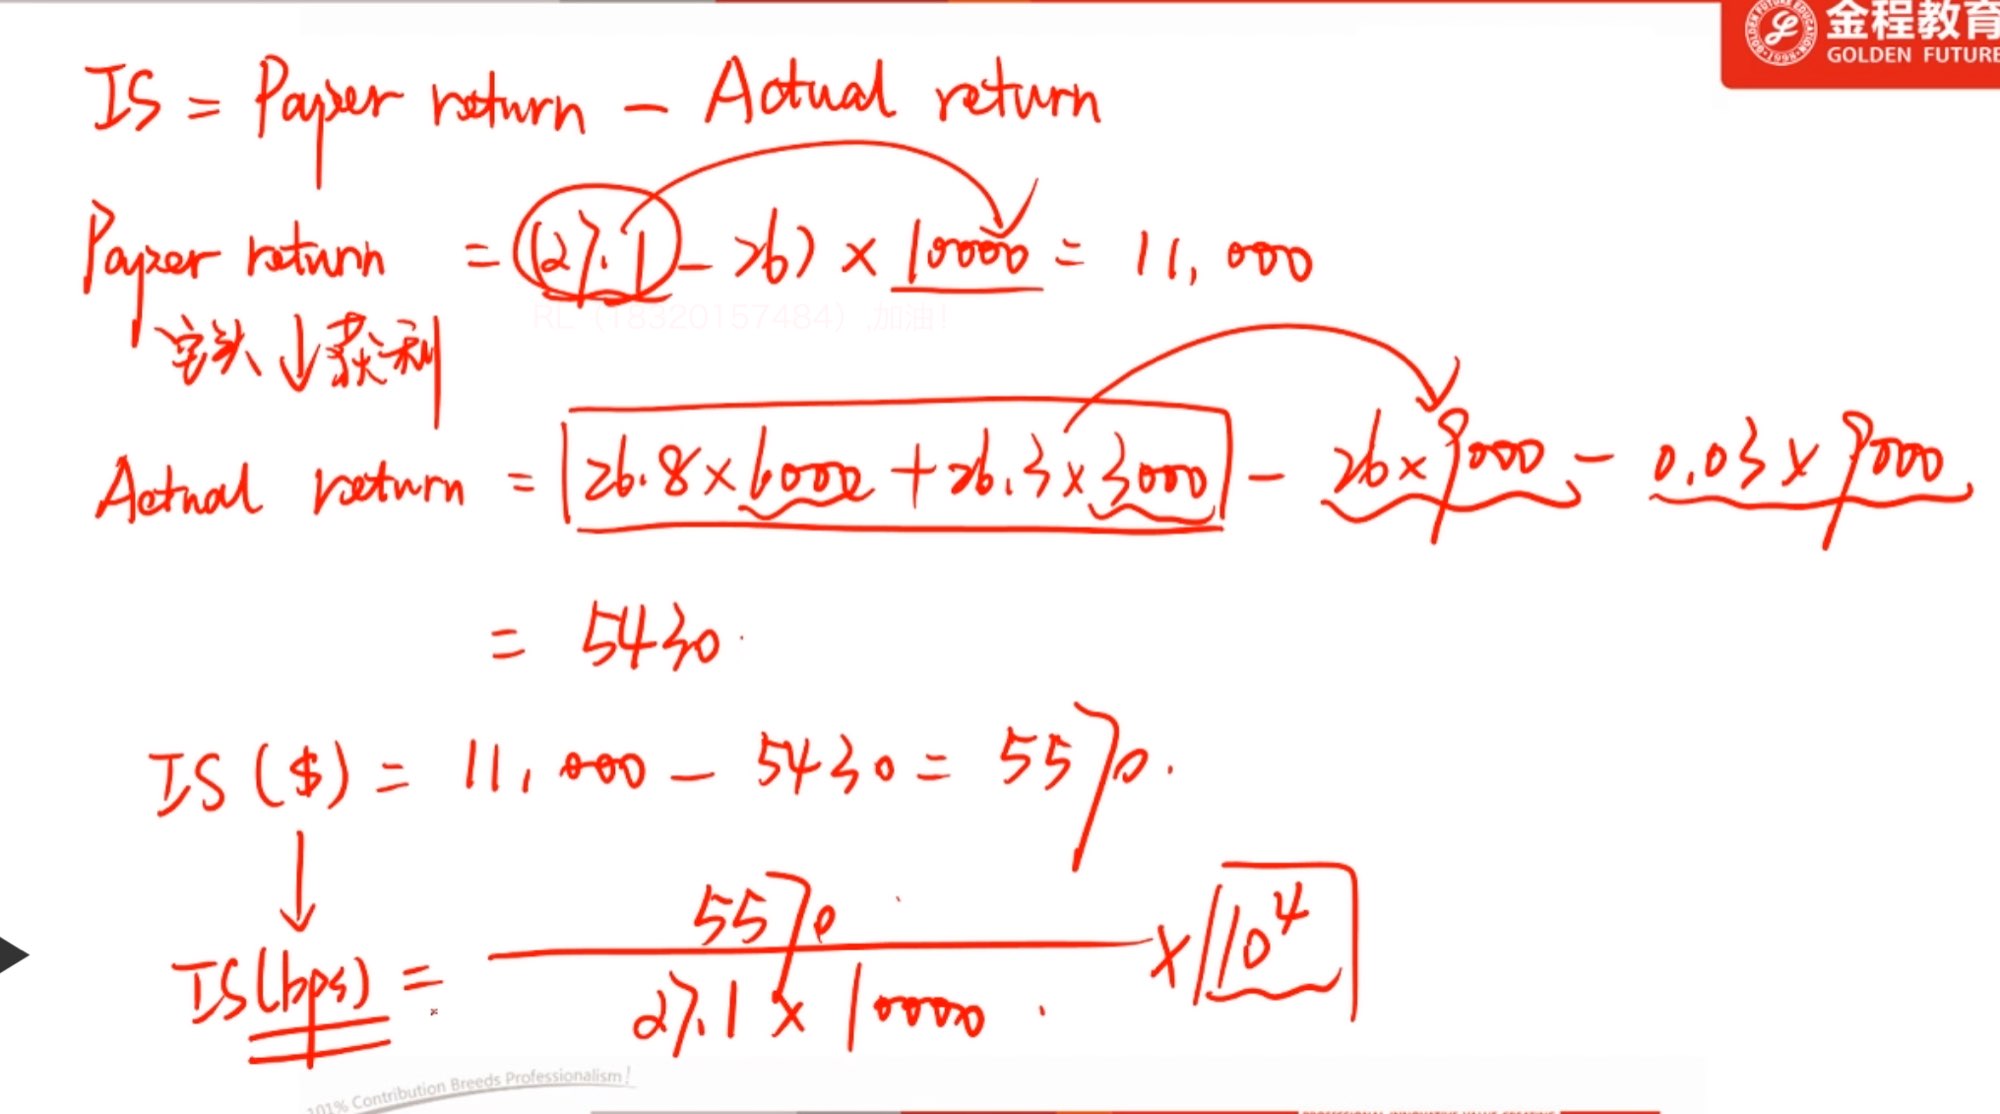 金程教育
GOLDEN FUTURE
IS = Paper return − Actual return
Paper return = (27.1 − 26) × 10000 = 11,000
RL（18320157484）,加油！
空头 ↓ 获利
Actual return = 26.8 × 6000 + 26.3 × 3000 − 26 × 9000 − 0.03 × 9000
= 5430
IS ($) = 11,000 − 5430 = 5570.
↓
IS(bps) = 5570 / 27.1 × 10000 × 10⁴
101% Contribution Breeds Professionalism!